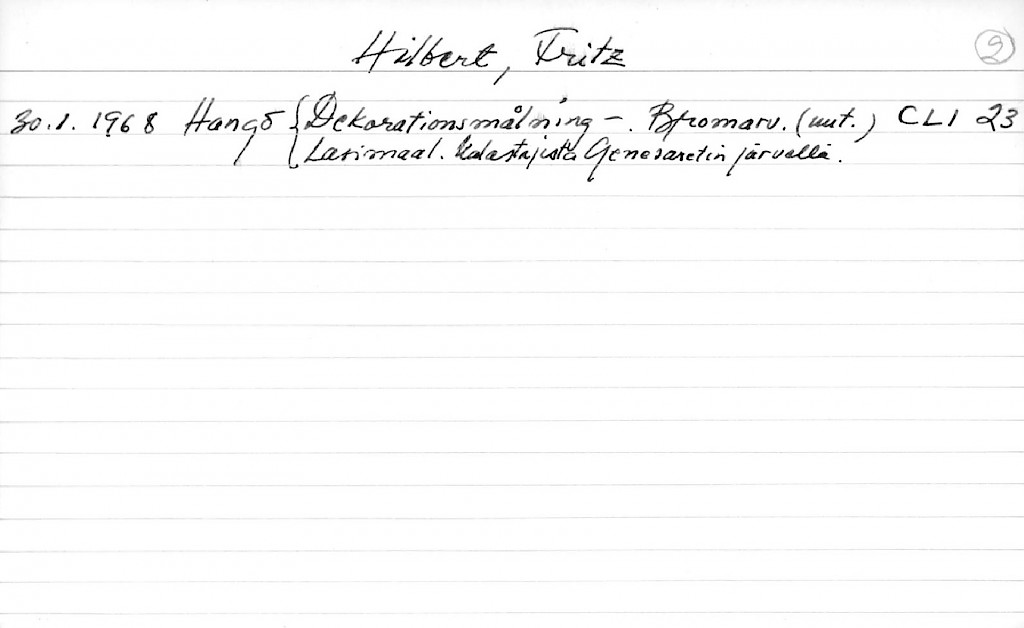 Hilbert, Fritz
2
30.1.1968 Hangö { Dekorationsmålning -. Bromarv. (uut.) CLI 23
Lasimaal. Kalastajista Genesaretin järvellä.